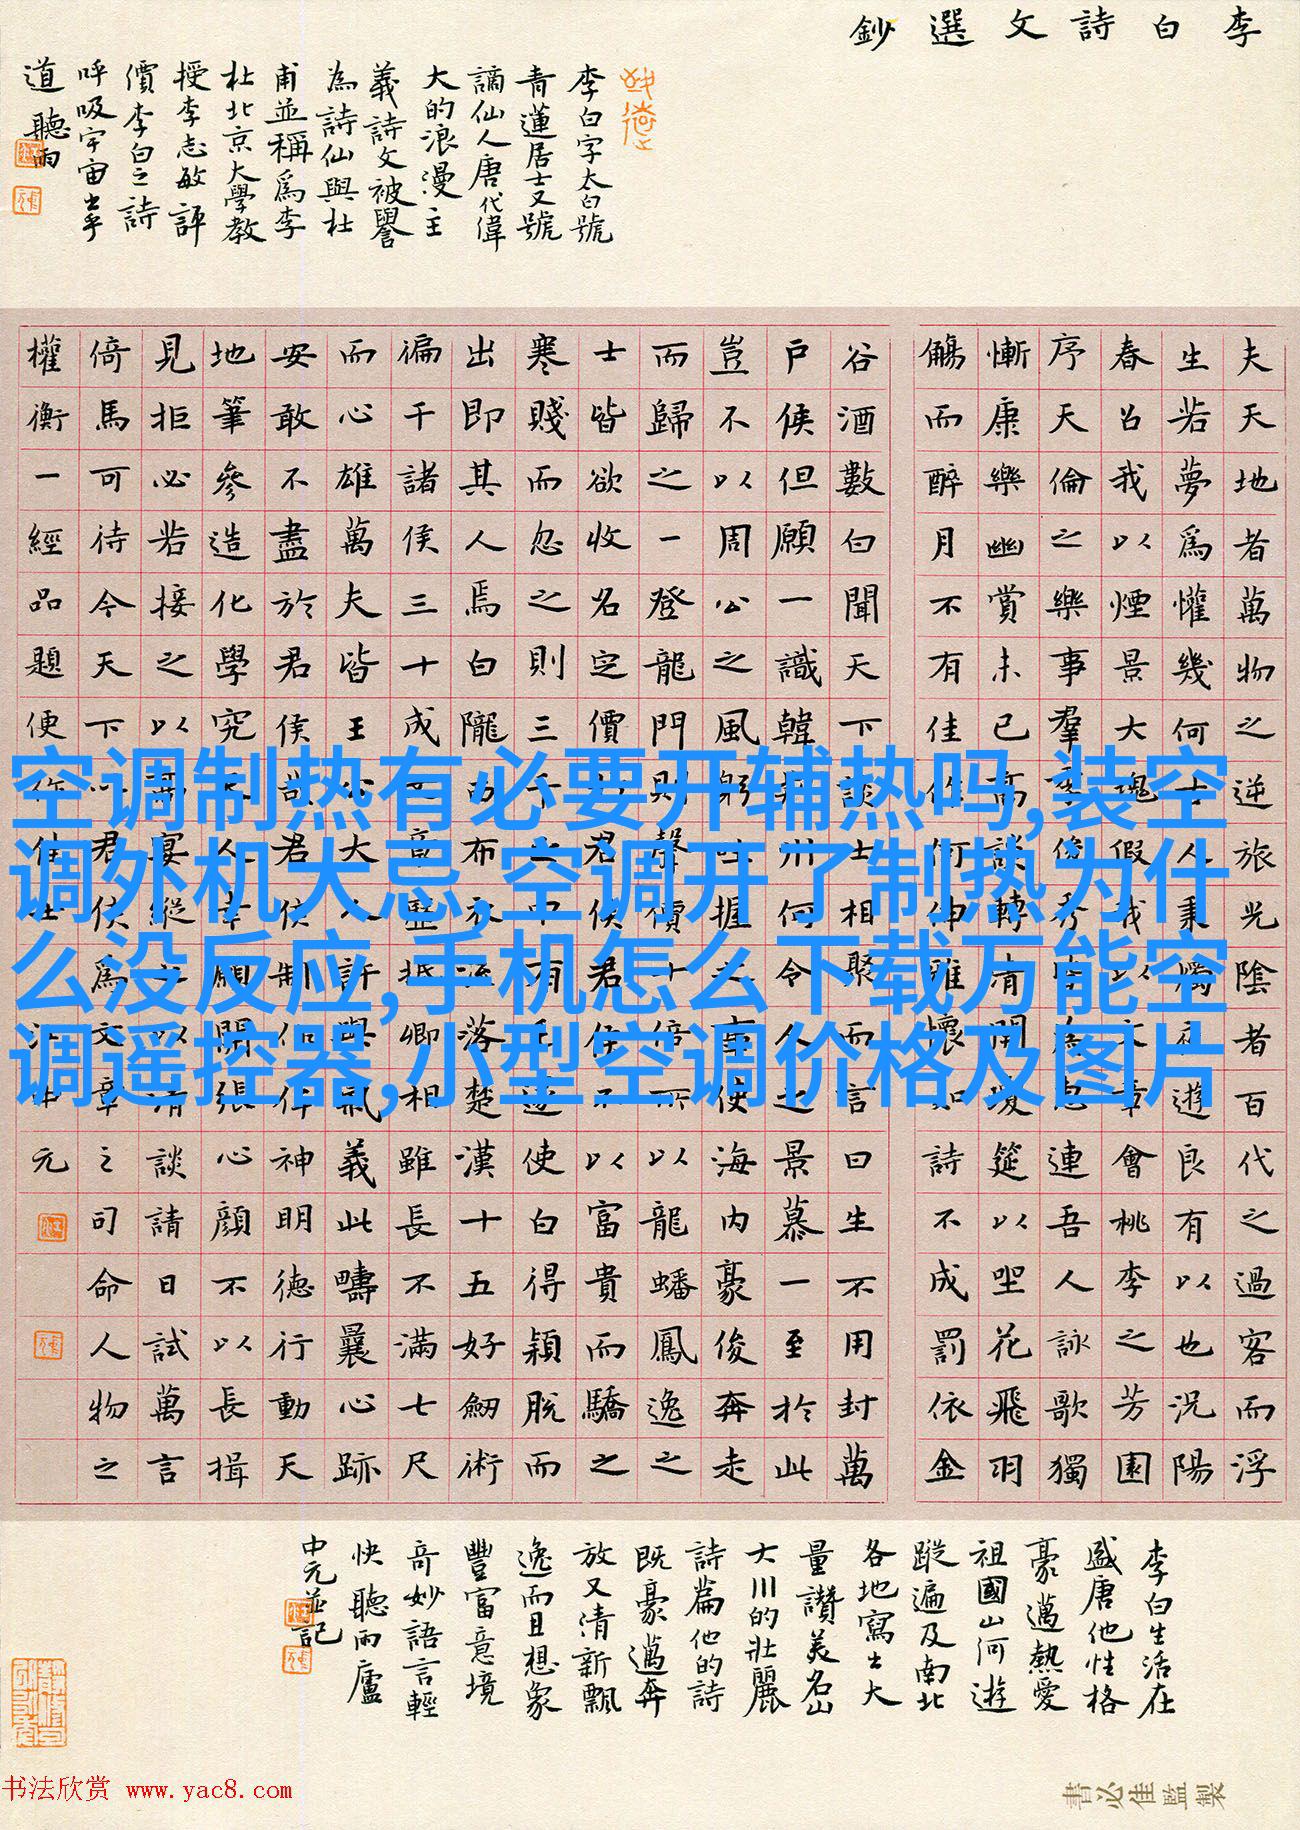 李白詩文選鈔
李白字太白號
青蓮居士又號
謫仙人唐代偉
大的浪漫主
義詩文被譽
為詩仙與杜
甫並稱爲李
杜北京大學教
授李志敏評
價李白之詩
呼吸宇宙出乎
道 聽雨
夫天地者萬物之逆旅光陰者百代之過客而浮
生若夢爲懽幾何古人秉燭夜遊良有以也況陽
春召我以煙景大塊假我以文章會桃李之芳園
序天倫之樂事羣季俊秀皆爲惠連吾人詠歌獨
慚康樂幽賞未已高談轉清開瓊筵以坐花飛羽
觴而醉月不有佳作何伸雅懷如詩不成罰依金
谷酒數白聞天下談士相聚而言曰生不用封萬
戶侯但願一識韓荊州何令人之景慕一至於此
豈不以周公之風躬吐握之事使海內豪俊奔走
而歸之一登龍門則聲價十倍所以龍蟠鳳逸之
士皆欲收名定價於君侯君侯不以富貴而驕之
寒賤而忽之則三千之中有毛遂使白得穎脫而
出即其人焉白隴西布衣流落楚漢十五好劒術
徧干諸侯三十成文章歷抵卿相雖長不滿七尺
而心雄萬夫皆王公大人許與氣義此疇曩心跡
安敢不盡於君侯哉君侯制作侔神明德行動天
地筆參造化學究天人幸願開張心顏不以長揖
見拒必若接之以高宴縱之以清談請日試萬言
倚馬可待今天下以君侯爲文章之司命人物之
權衡一經品題便作佳士 元
空调制热有必要开辅热吗,装空
调外机大忌,空调开了制热为什
么没反应,手机怎么下载万能空
调遥控器,小型空调价格及图片
李白生活在
盛唐他性格
豪邁熱愛
祖國山河遊
蹤遍及南北
各地寫出大
量讚美名山
大川的壯麗
詩篇他的詩
既豪邁奔
放又清新飄
逸而且想象
豐富意境
奇妙語言輕
快 聽雨廬
中元並記
书法欣赏 www.yac8.com
書必佳監製